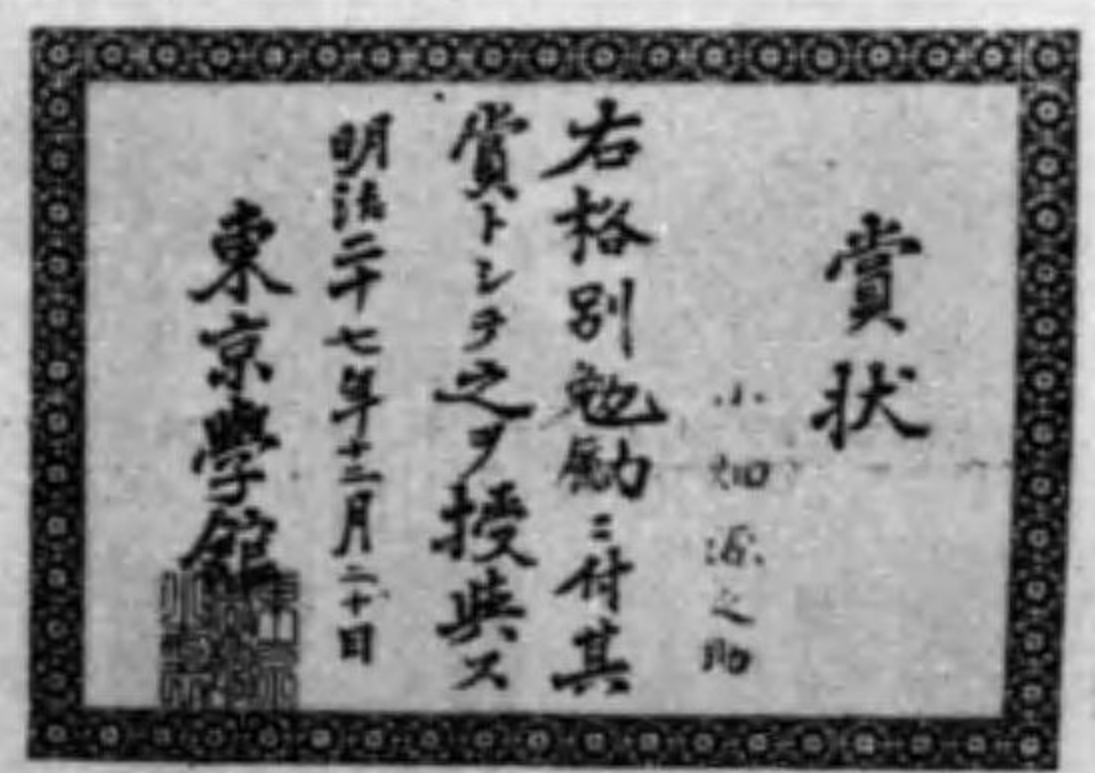 賞状
小畑源之助
右格別勉励ニ付其
賞トシテ之ヲ授與ス
明治二十七年十二月二十日
東京學館